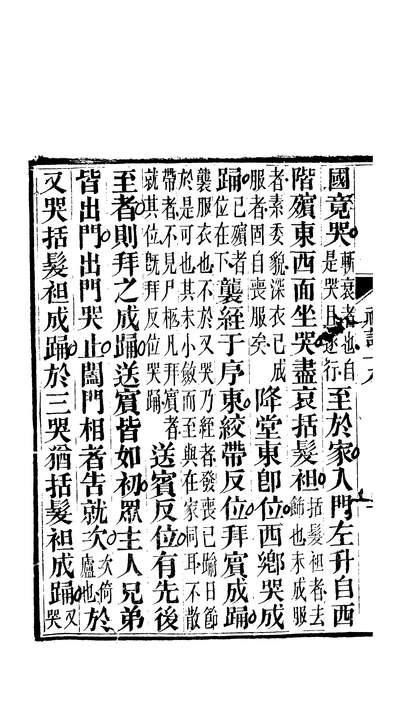 國竟哭斬衰者也自是哭且遂行至於家入門左升自西
階殯東西面坐哭盡哀括髮袒括髮袒者去飾也未成服
者素委貌深衣已成服者固自喪服矣降堂東卽位西鄉哭成
踊已殯者位在下襲絰于序東絞帶反位拜賓成踊
襲服衣也不於又哭乃絰者發喪已踰日節於是可也其未小斂而至與在家同耳不散
帶者不見尸柩凡拜賓者就其位旣拜反位哭踊送賓反位有先後
至者則拜之成踊送賓皆如初眾主人兄弟
皆出門出門哭止闔門相者告就次次倚廬也於
又哭括髮袒成踊於三哭猶括髮袒成踊又哭